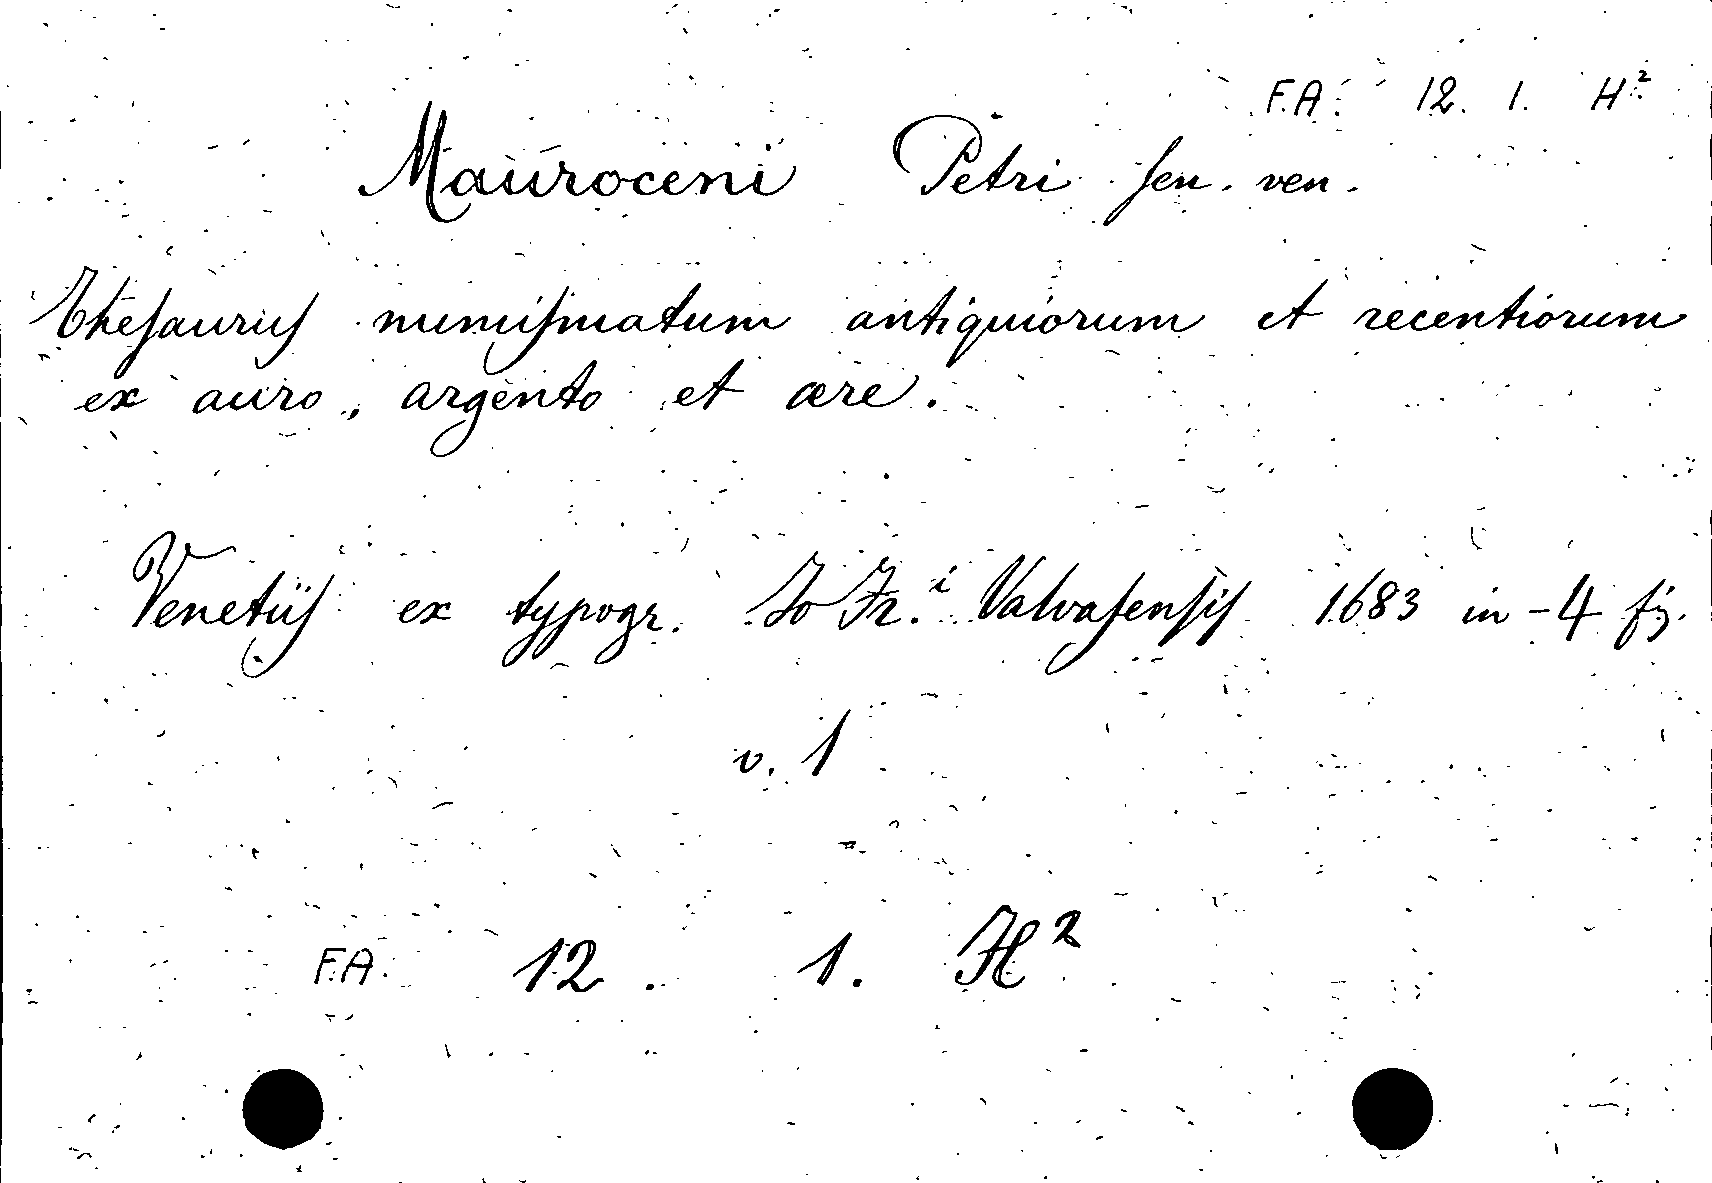 F.A. 12. 1. H²
Mauroceni Petri sen. ven.
Thesaurus numismatum antiquiorum et recentiorum
ex auro, argento et ære.
Venetiis ex typogr. Jo Fr.i Valvasensis 1683 in-4 fig.
v. 1
F.A. 12. 1. H²